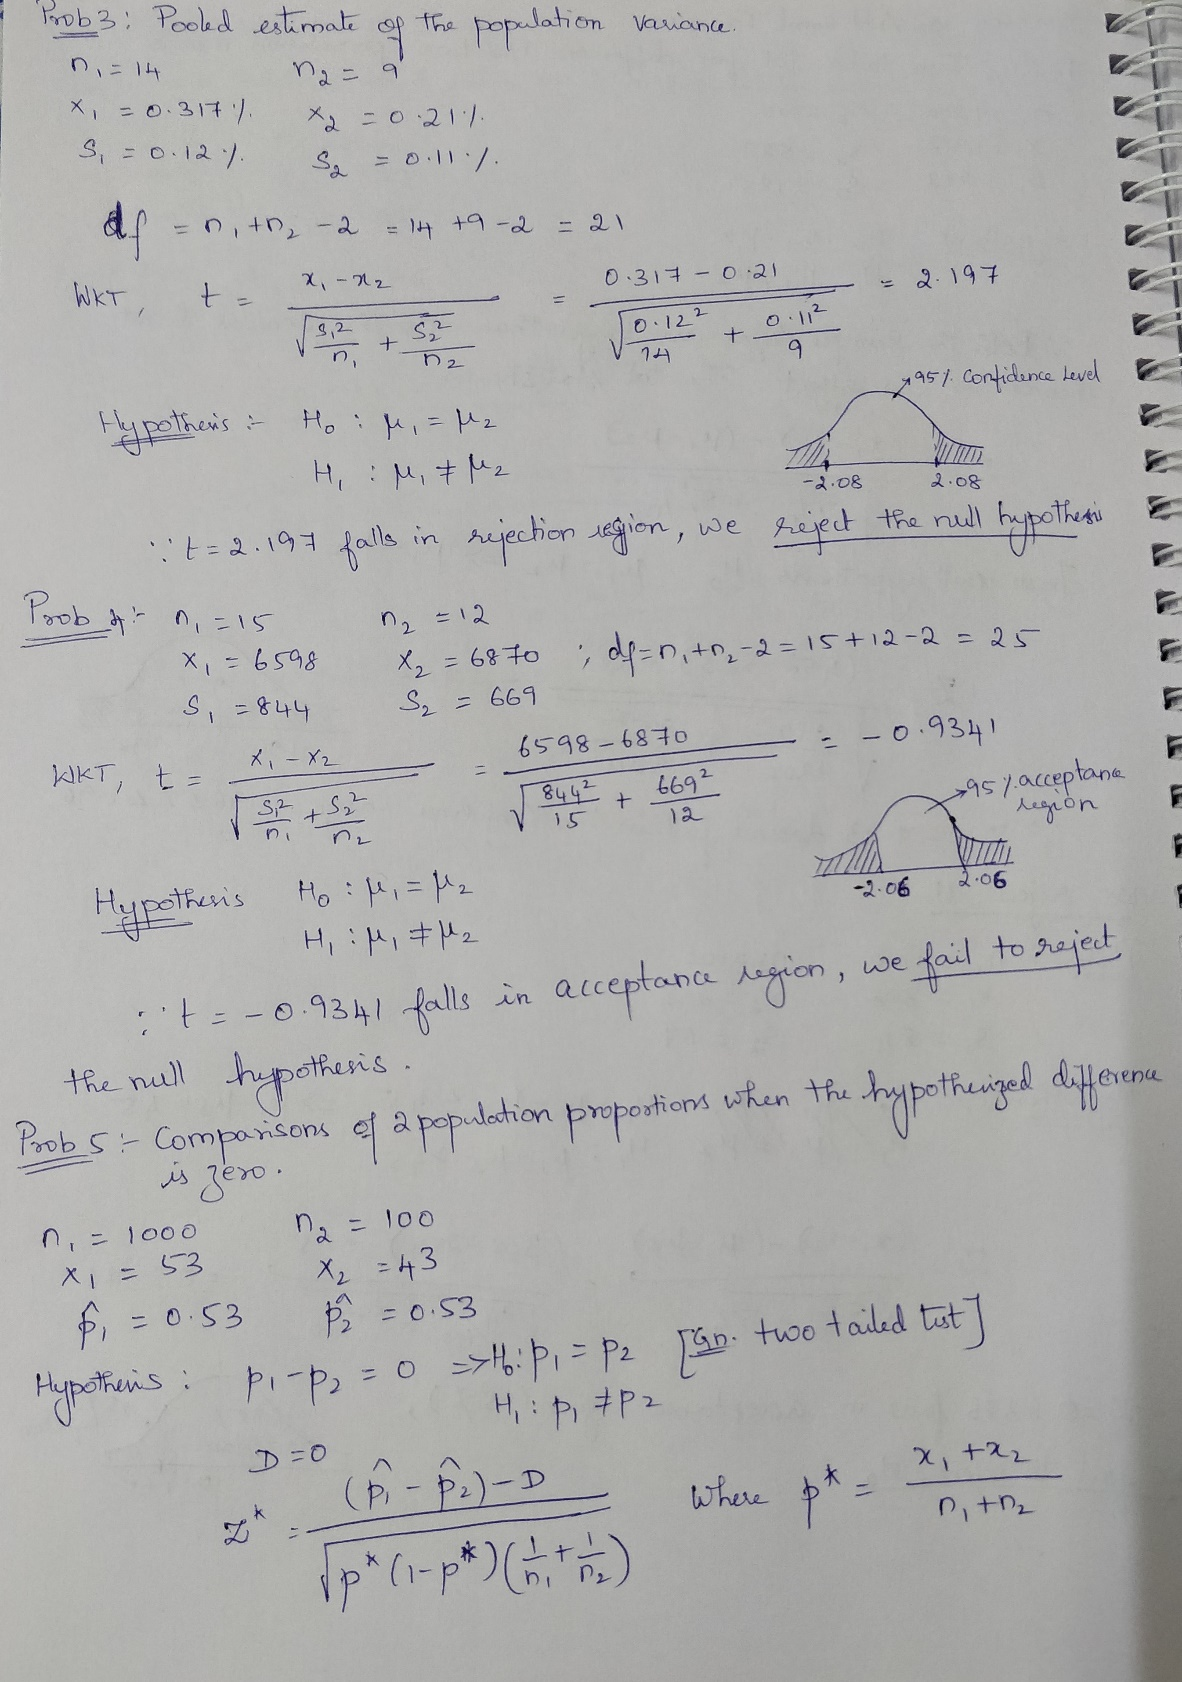 Prob 3: Pooled estimate of the population variance.
n₁ = 14 n₂ = 9
x₁ = 0.317% x₂ = 0.21%
S₁ = 0.12% S₂ = 0.11%
df = n₁+n₂-2 = 14+9-2 = 21
WKT, t = (x₁-x₂)/√(S₁²/n₁ + S₂²/n₂) = (0.317-0.21)/√(0.12²/14 + 0.11²/9) = 2.197
95% Confidence Level
Hypothesis :- H₀ : μ₁ = μ₂
H₁ : μ₁ ≠ μ₂
-2.08 2.08
∵ t = 2.197 falls in rejection region, we reject the null hypothesis
Prob 4:- n₁ = 15 n₂ = 12
x₁ = 6598 x₂ = 6870 ; df = n₁+n₂-2 = 15+12-2 = 25
S₁ = 844 S₂ = 669
WKT, t = (x₁-x₂)/√(S₁²/n₁ + S₂²/n₂) = (6598-6870)/√(844²/15 + 669²/12) = -0.9341
95% acceptance region
-2.06 2.06
Hypothesis H₀ : μ₁ = μ₂
H₁ : μ₁ ≠ μ₂
∵ t = -0.9341 falls in acceptance region, we fail to reject
the null hypothesis.
Prob 5:- Comparisons of 2 population proportions when the hypothesized difference
is zero.
n₁ = 1000 n₂ = 100
x₁ = 53 x₂ = 43
p̂₁ = 0.53 p̂₂ = 0.53
Hypothesis : p₁-p₂ = 0 => H₀: p₁ = p₂ [Gn. two tailed test]
H₁ : p₁ ≠ p₂
D = 0
Z* = ((p̂₁ - p̂₂) - D)/√(p*(1-p*)(1/n₁ + 1/n₂)) where p* = (x₁+x₂)/(n₁+n₂)